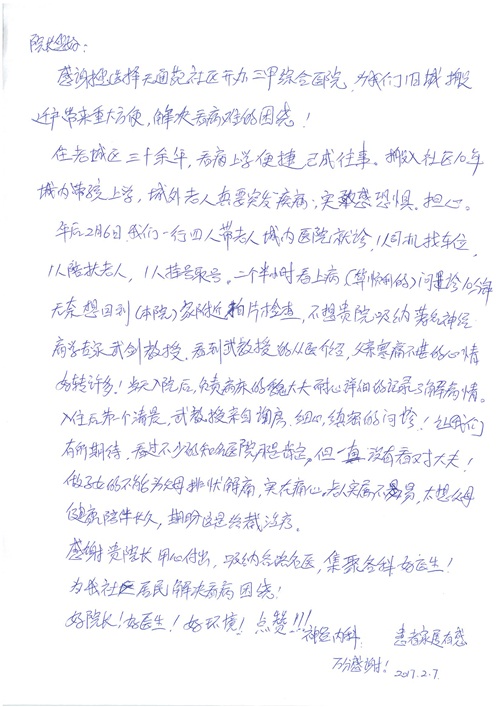 院长您好:
感谢您选择天通苑社区开办三甲综合医院,为我们旧城搬
迁户带来重大方便,解决看病难的困绕!
住老城区三十余年,看病上学便捷已成往事。搬入社区10年
城内带孩上学,城外老人
突发疾病,实
感恐惧、担心。
年后2月6日,我们一行四人带老人城内医院就诊,1人司机找车位,
1人陪扶老人,1人挂号取号。二个半小时看上病,
问诊10分钟
无奈想回到(本院)家附近拍片检查,不想贵院吸纳著名神经
病学专家武剑教授,看到武教授的从医介绍,父亲
病
的心情
好转许多!当天入院后,负责病床的
大夫耐心详细的记录了解病情。
入住后第一个清晨,武教授亲自询房,细心、缜密的问诊!让我们
有所期待,看过不少的知名医院
肯定。但一直没有看对大夫!
做子女的不能为父母排忧解痛,实在痛心。老人实属不易,太想父母
健康陪伴长久,期盼这是终裁治疗。
感谢贵院长用心付出,吸纳各路名医,集聚各科好医生!
为社区居民解决看病困绕!
好院长!好医生!好环境!点赞!!!
神经内科: 患者家属有感
万分感谢! 2017.2.7